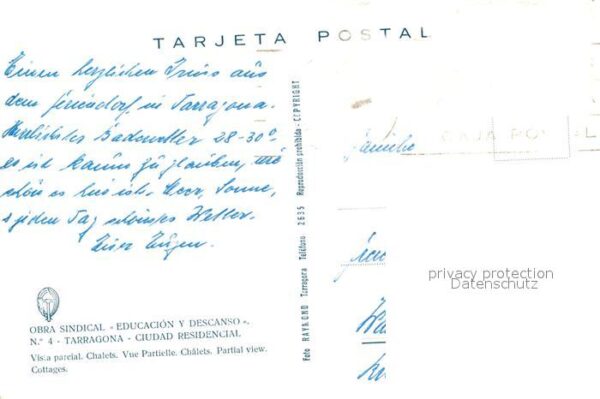 TARJETA POSTAL
Einen herzlichen Gruss aus
dem Feriendorf in Tarragona.
Herrlichstes Badewetter 28-30°
es ist kaum zu glauben, wie
schön es hier ist. Meer, Sonne,
u. jeden Tag schönstes Wetter.
Euer Eugen.
OBRA SINDICAL «EDUCACIÓN Y DESCANSO».
N.° 4 - TARRAGONA - CIUDAD RESIDENCIAL
Vista parcial. Chalets. Vue Partielle. Châlets. Partial view.
Cottages.
Foto RAYMOND Tarragona Teléfono 2635 Reproducción prohibida - COPYRIGHT
CAJA POSTAL
Familie
privacy protection
Datenschutz